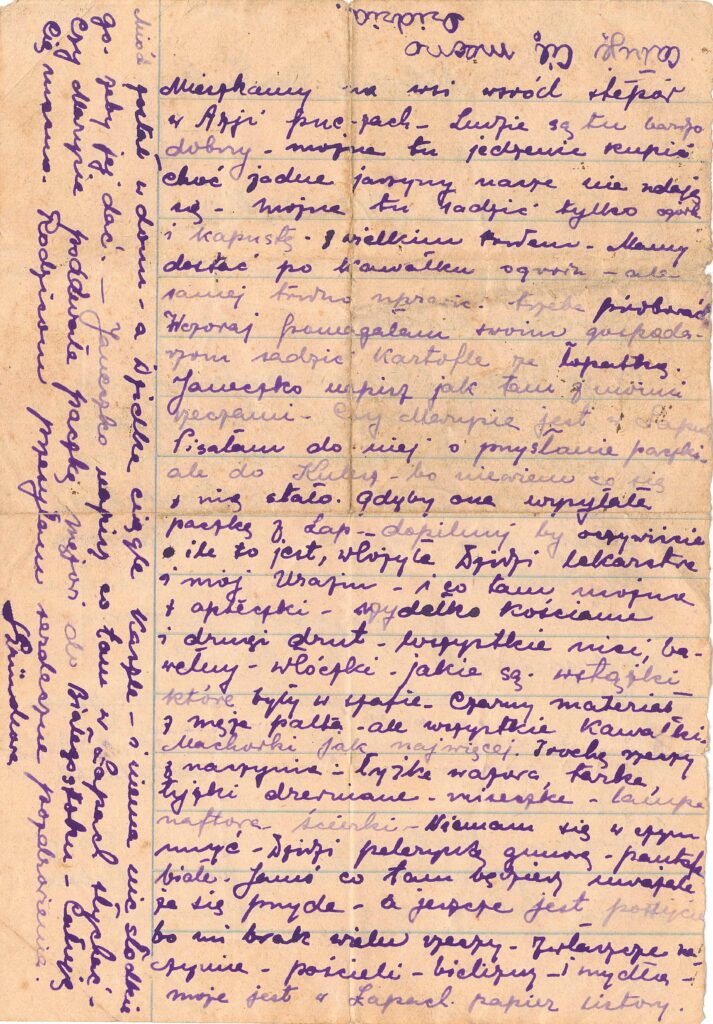 Mieszkamy na wsi wśród stepów
w Azji puczach - Ludzie są tu bardzo
dobrzy - można tu jedzenie kupić
choć żadne jarzyny nasze nie udają
się - można tu sadzić tylko ogórk
i kapustę - z wielkim trudem - Mamy
dostać po kawałku ogrodu - ale
samej trudno uprawić. trzeba próbować
Wczoraj pomagałam swoim gospoda-
rzom sadzić kartofle ze łopatką.
Janeczko napisz jak tam z moimi
rzeczami - Czy Marysia jest w Łapach
Pisałam do niej o przysłanie paczki
ale do - bo niewiem co się
z nią stało. Gdyby ona wysyłała
paczkę z Łap - dopilnuj by oczywiście
o ile to jest, włożyła Dzidzi lekarstwa
i mój - i co tam można
z apteczki - szydełko kościane
i drugi drut - wszystkie nici, ba-
wełny - włóczki - jakie są. wstążki
które były w szafie - Czarny materiał
z męża palta - ale wszystkie kawałki
Machorki jak najwięcej. Trochę rzeczy
z naczynia - łyżkę wazową, tarkę,
łyżki drewniane - miseczkę - lampę
naftową - ścierki - Niemam się w czym
myć - Dzidzi pelerynkę gumową - pantofle
białe. Janiu co tam będziesz uważała
że się przyda - a jeszcze jest
bo mi brak wielu rzeczy - Zwłaszcza na-
czynia - pościeli - bielizny - i mydła -
moje jest w Łapach. papier listowy.
Miód został w domu - a Dzidka ciągle kaszle - i niema nic słodkie
go. żeby jej dać. - Janeczko napisz co tam w Łapach słychać -
Czy Marysia paczkę mężowi do Białegostoku - Całuję
Cię mocno. Rodzicom przesyłam serdeczne pozdrowienia.
Całuję Cię mocno
Dzidzia.